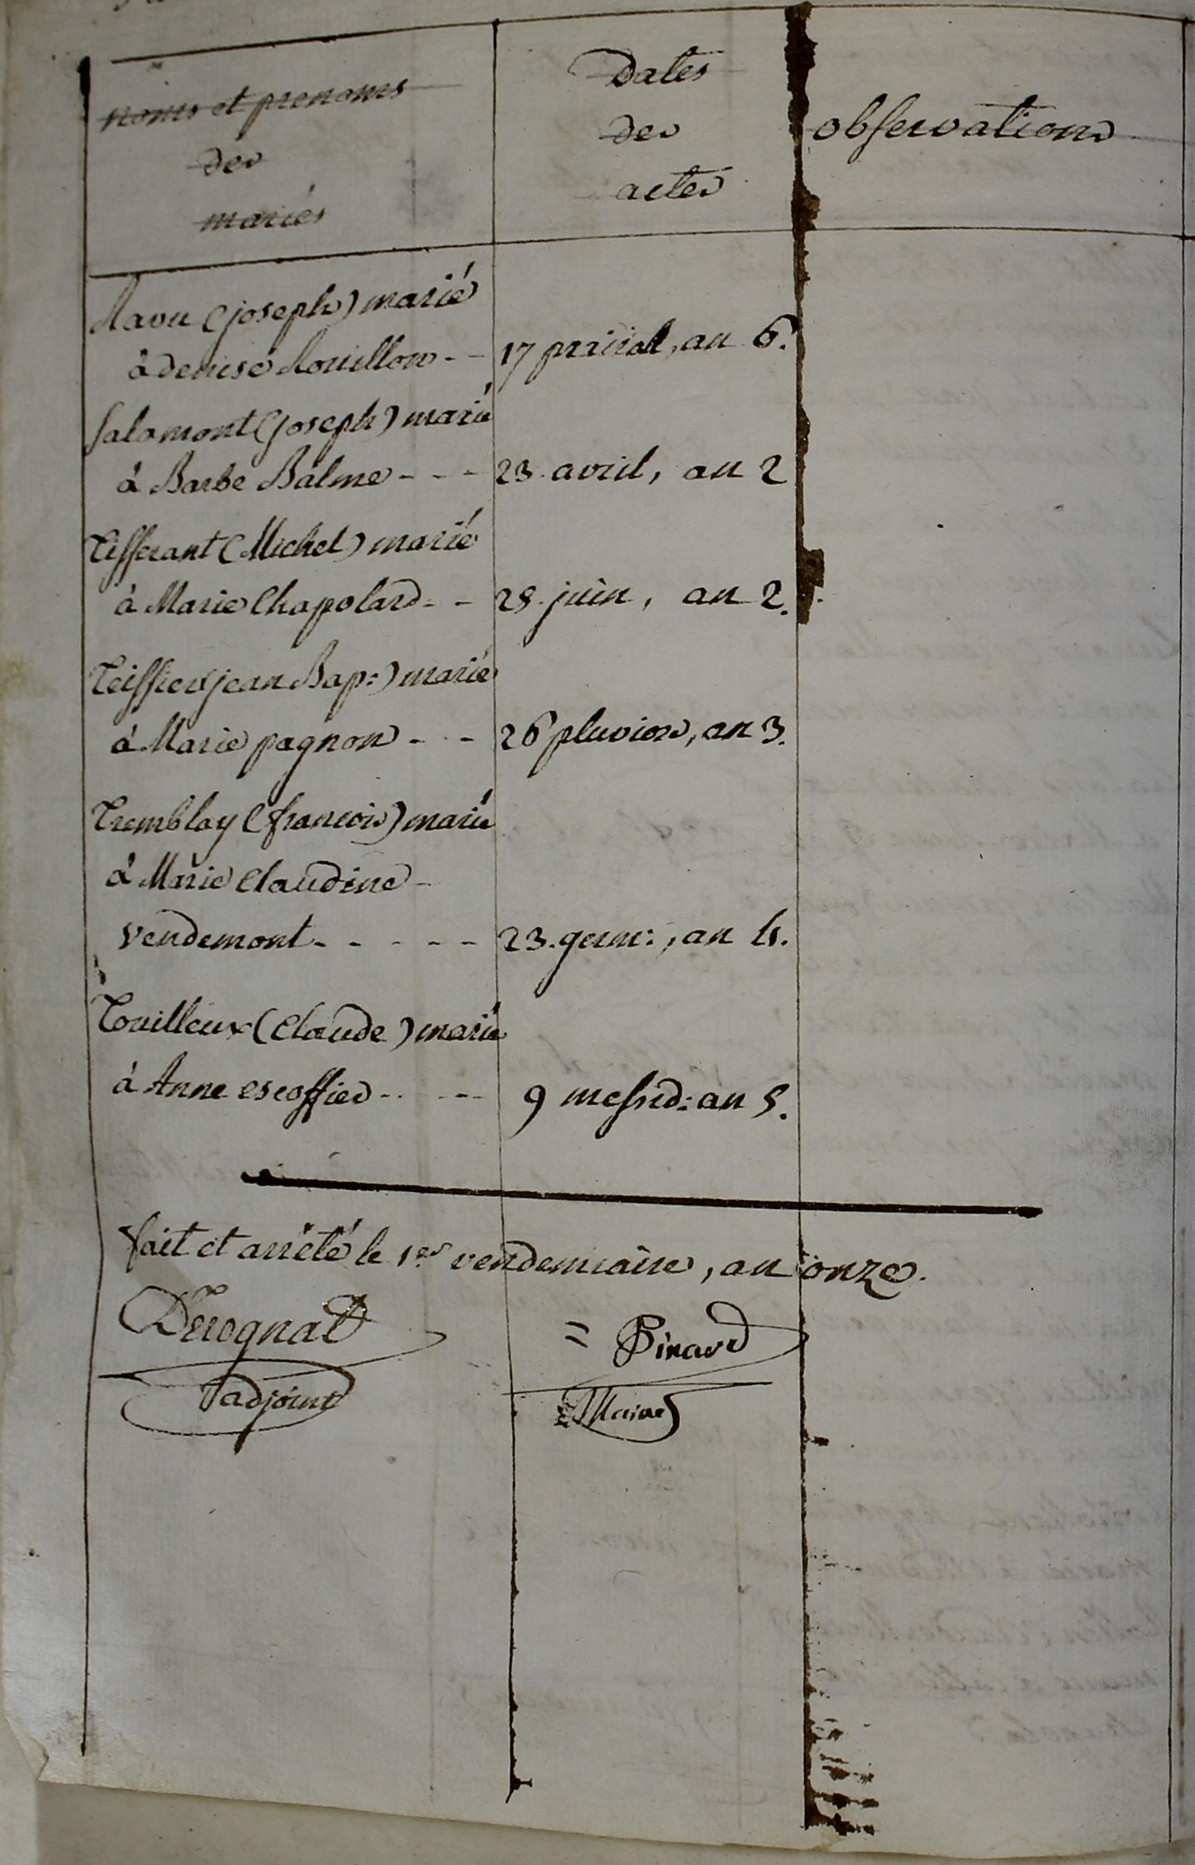 noms et prenoms
des
mariés
Dates
des
actes
observations
Ravu (joseph) marié
à denise Rouillon - - 17 prairial, an 6.
Salamont (joseph) marié
à Barbe Balme - - - 23 avril, an 2
Tisserant (Michel) marié
à Marie Chapolard - - 28 juin, an 2.
Teissier (jean Bap:) marié
à Marie pagnon - - - 26 pluviose, an 3.
Tremblay (francois) marié
à Marie Claudine
Vendemont - - - - - 23 germ:, an 4.
Touilleux (Claude) marié
à Anne escoffier - - - - 9 messid: an 5.
fait et arrêté le 1er vendemiaire, an onze.
Derognat = Pinard
adjoint Maire